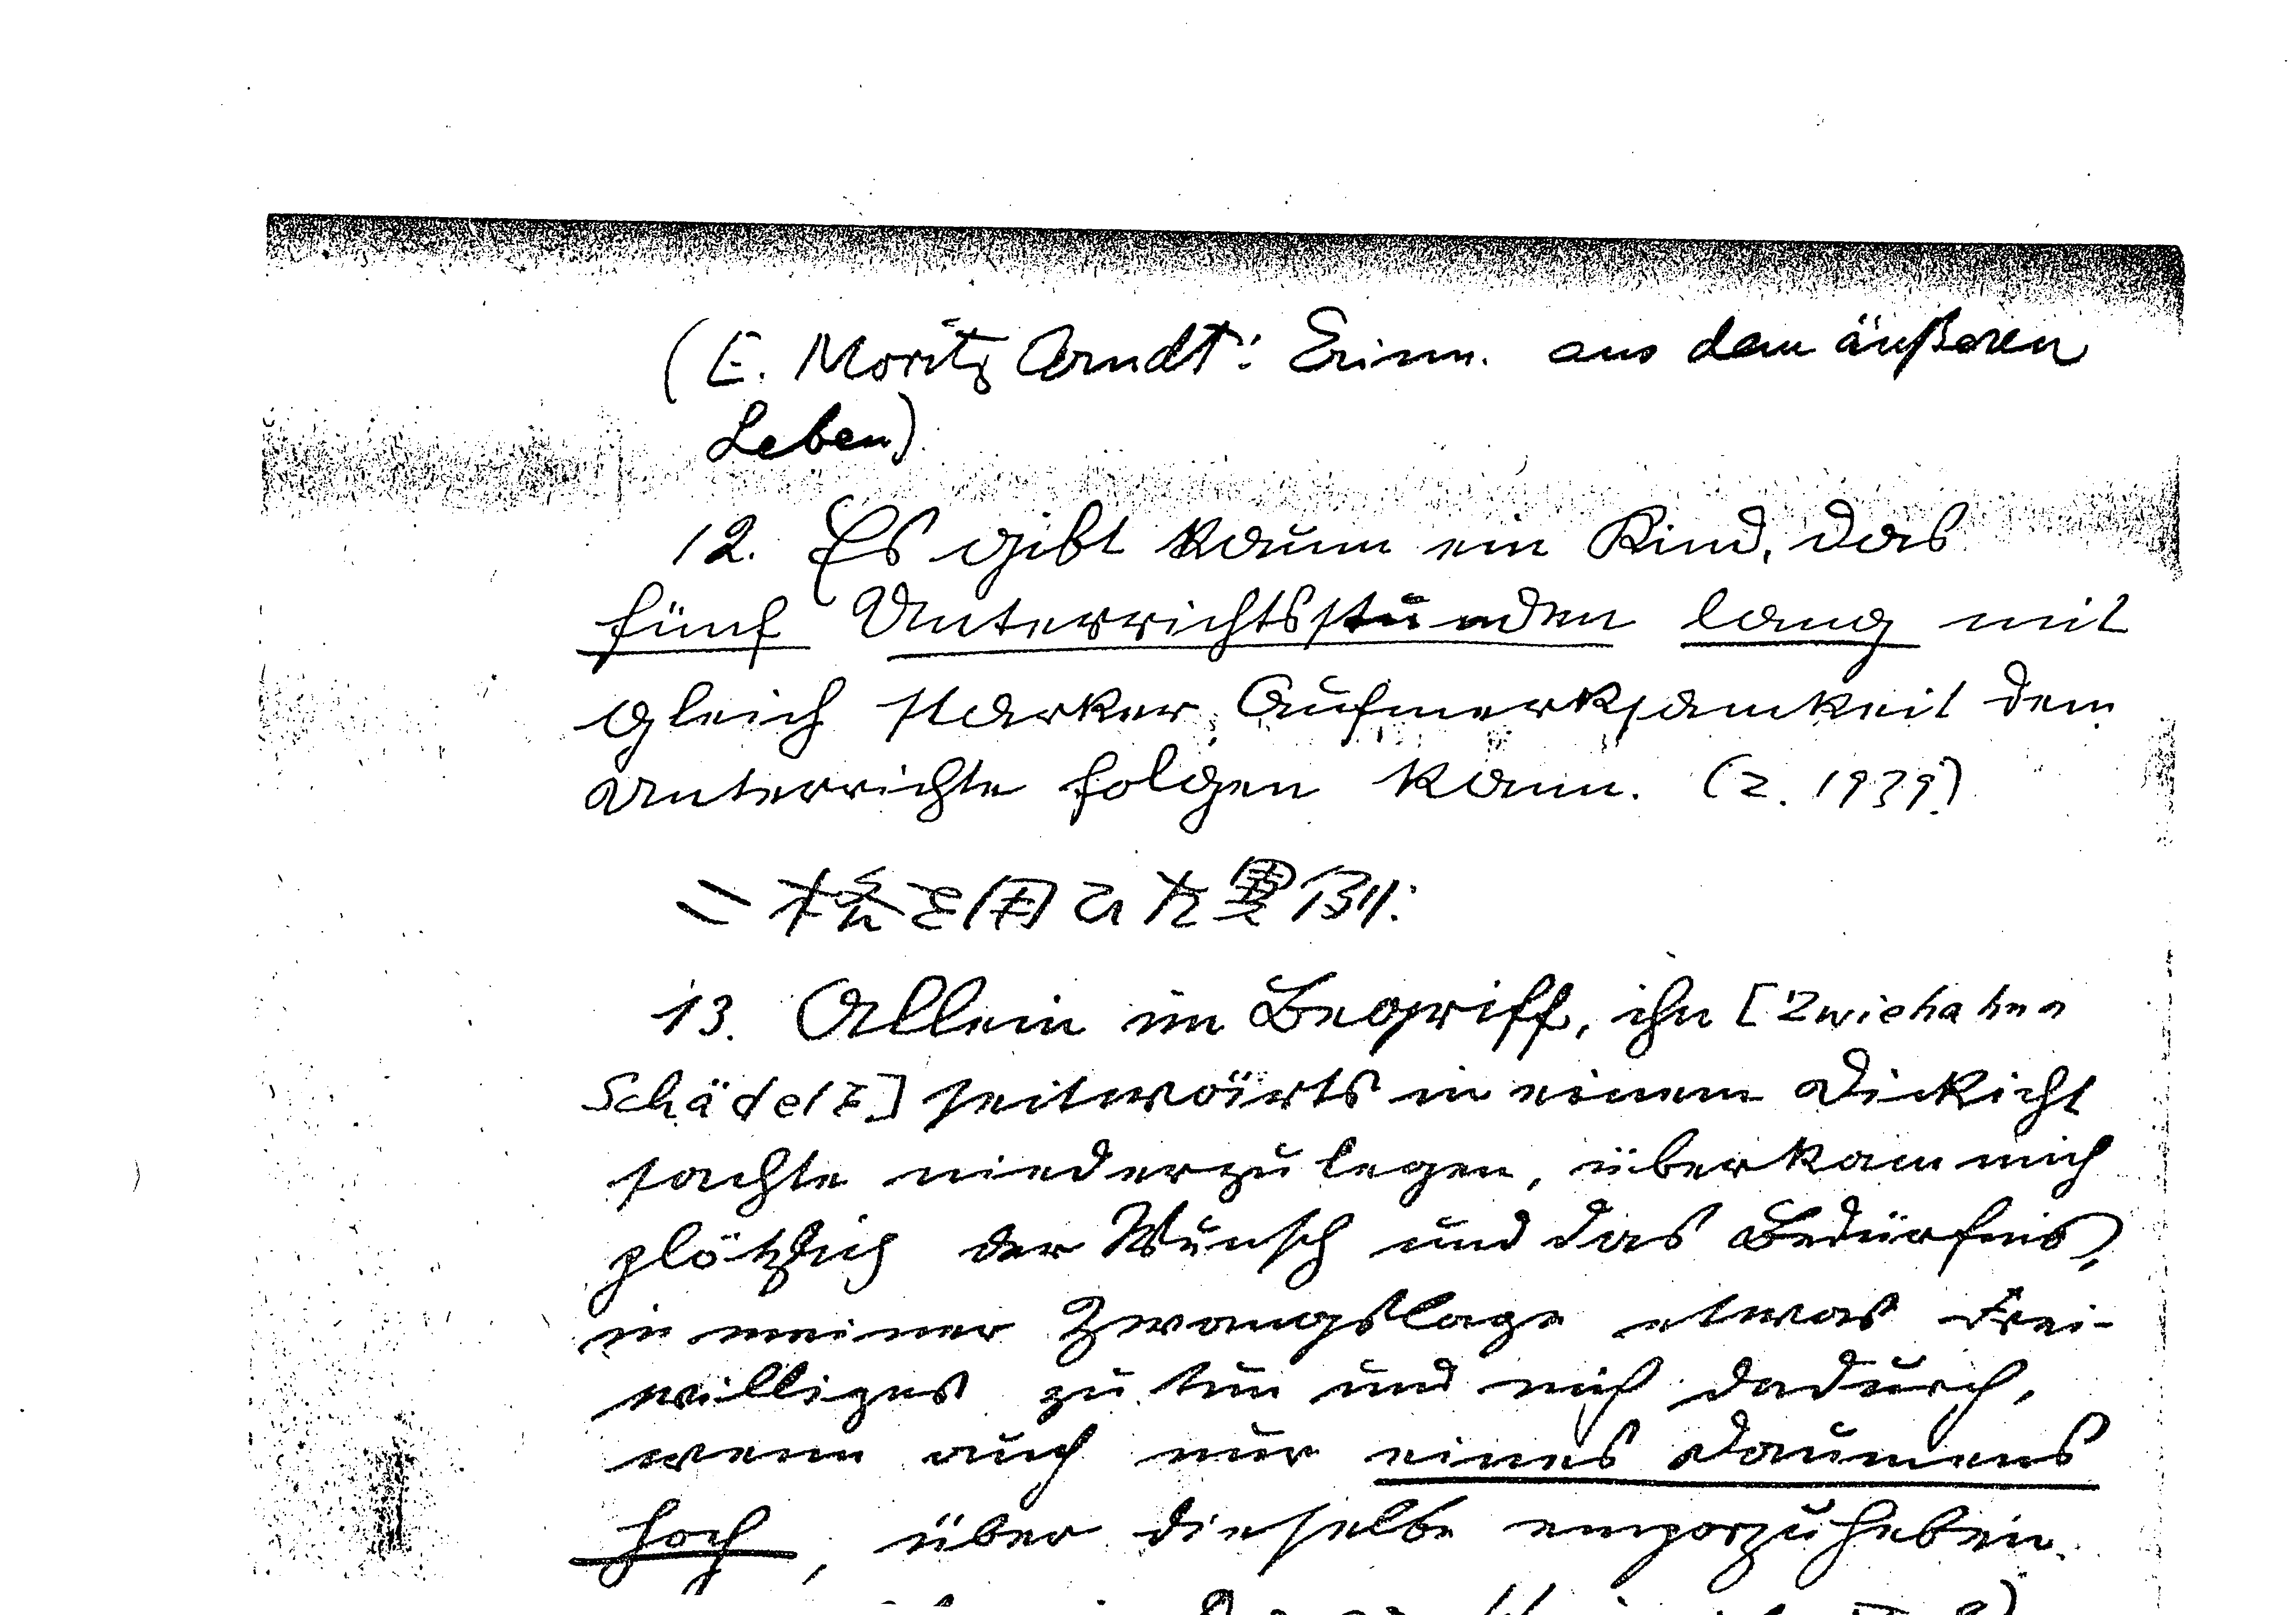 (E. Moritz Arndt: Erinn. aus dem äußeren
Leben)
12. Es gibt kaum ein Kind, das
fünf Unterrichtsstunden lang mit
gleich starker Aufmerksamkeit dem
Unterrichte folgen kann. (Z. 1939)
13. Allein im Begriff, ihn [Zwiehahns
Schädel] seitwärts in einem Dickicht
sachte niederzulegen, überkam mich
plötzlich der Wunsch und das Bedürfnis,
in meiner Zwangslage etwas Frei-
williges zu tun und mich dadurch,
wenn auch nur eines Daumens
hoch, über dieselbe emporzuheben.